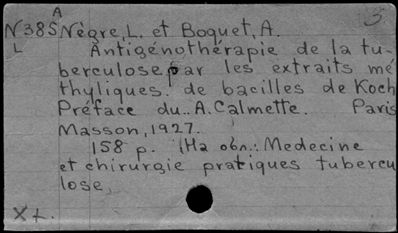 A 5
N385 Nègre, L. et Boquet, A.
L Antigénothérapie de la tu-
berculose par les extraits mé
thyliques de bacilles de Koch
Préface du.. A. Calmette. Paris
Masson, 1927.
158 p. (На обл.: Medecine
et chirurgie pratiques tubercu
lose,
XL.